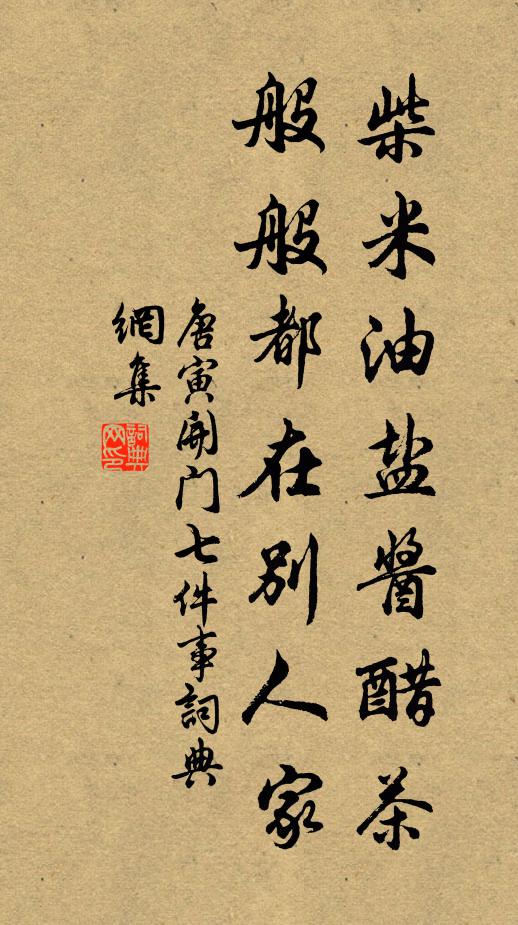 柴米油盐醬醋茶
般般都在別人家
唐寅開门七件事詞典
網集
詞典
网印